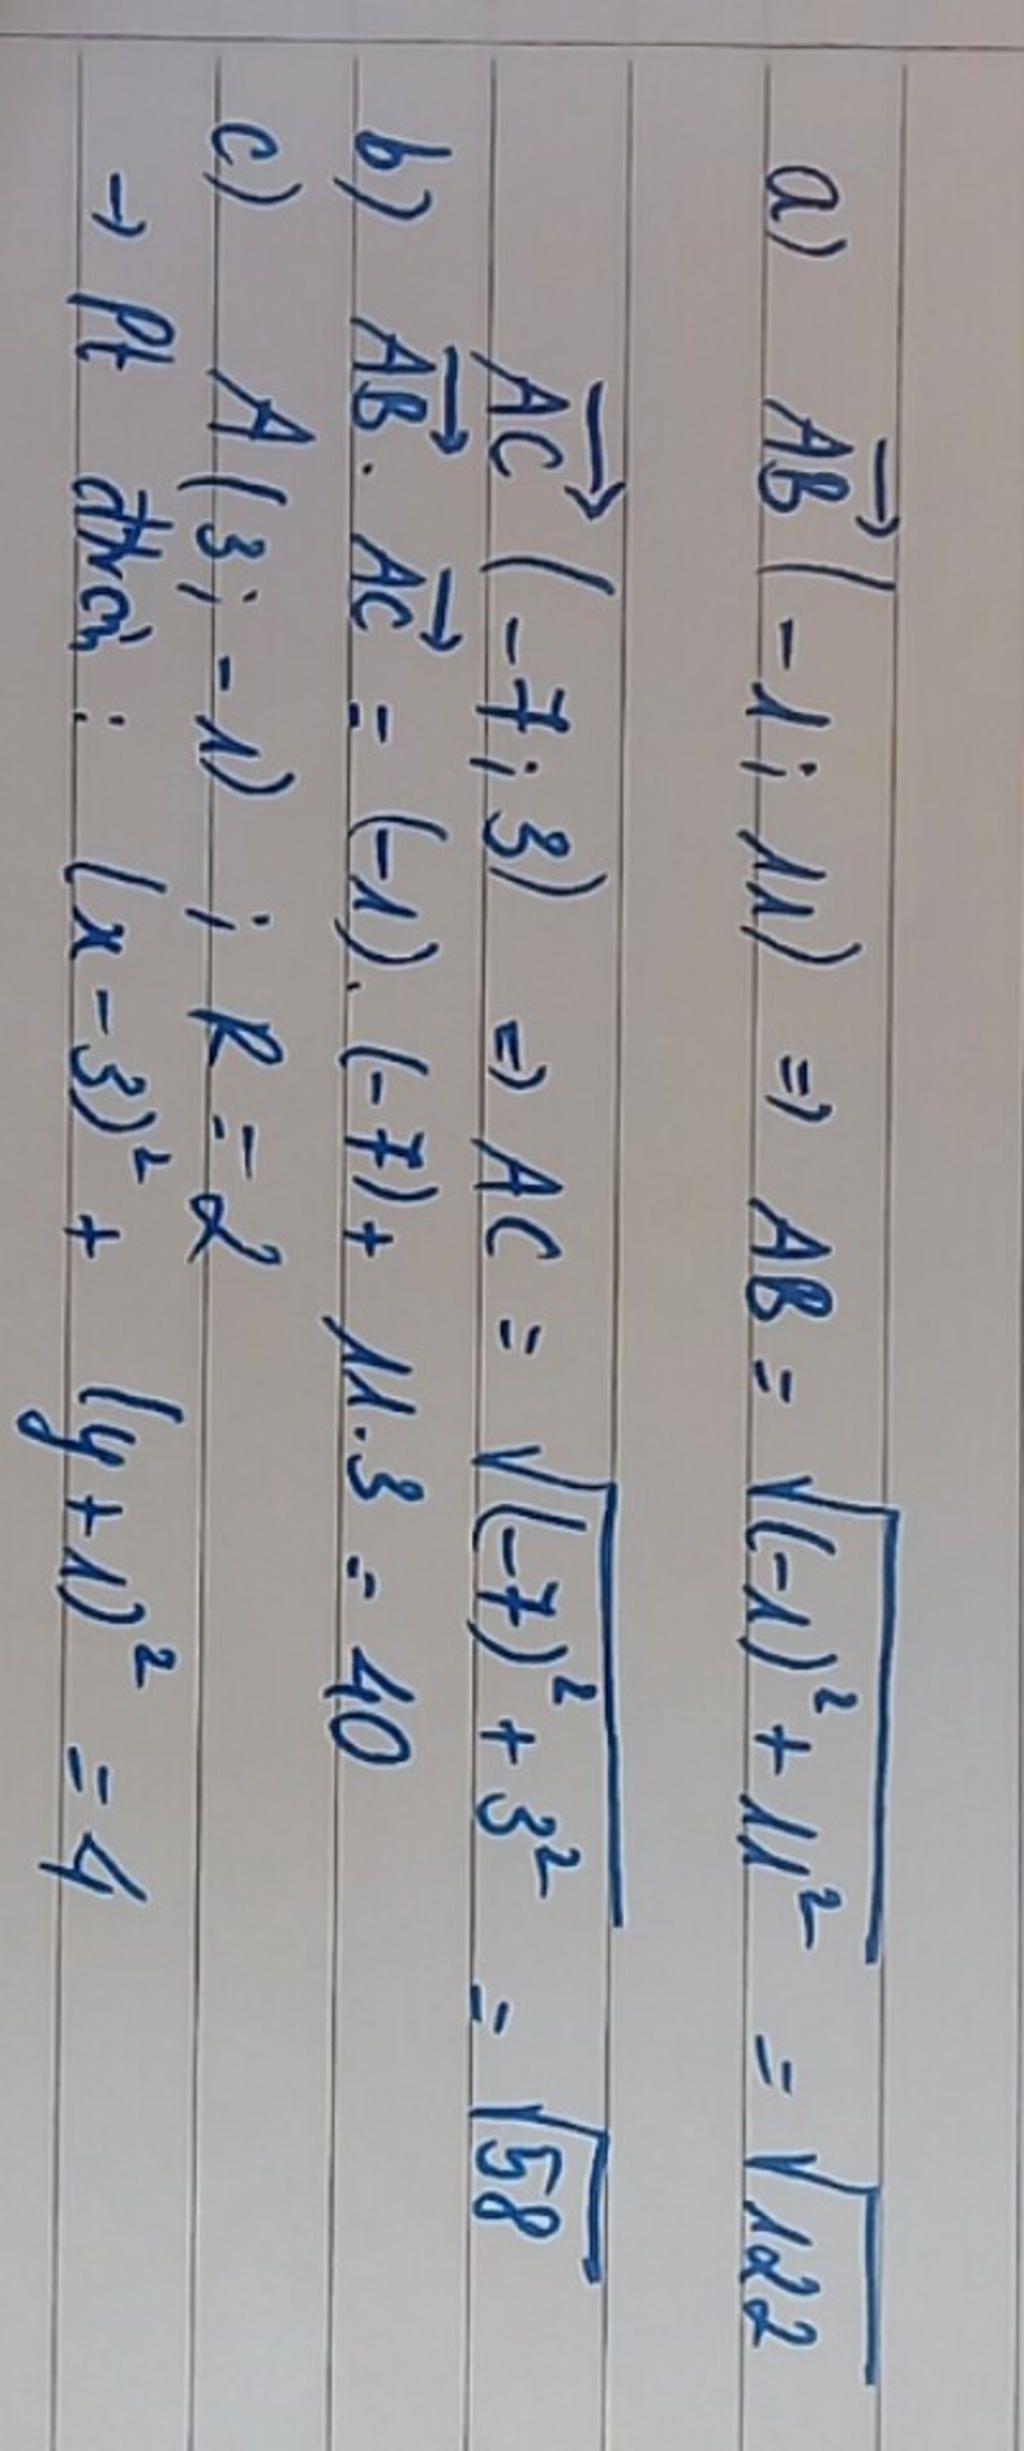 a) AB→ (-1; 11) => AB = √((-1)² + 11²) = √122
AC→ (-7; 3) => AC = √((-7)² + 3²) = √58
b) AB→ . AC→ = (-1).(-7) + 11.3 = 40
c) A(3; -1) ; R = 2
→ Pt đtròn : (x - 3)² + (y + 1)² = 4